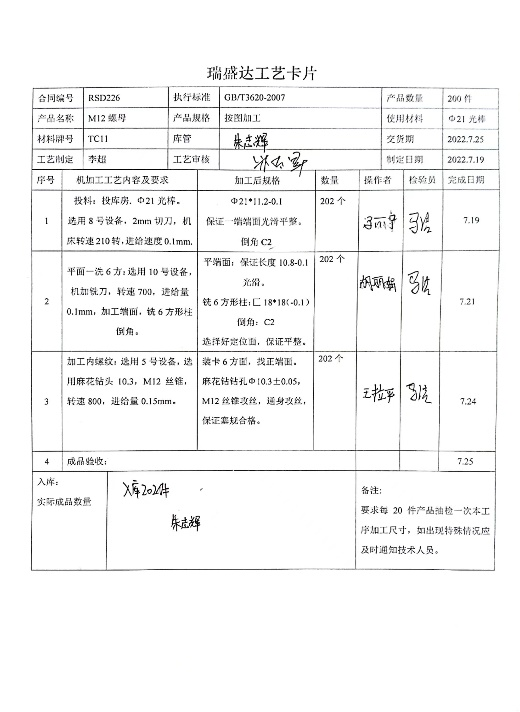 瑞盛达工艺卡片
合同编号 RSD226 执行标准 GB/T3620-2007 产品数量 200 件
产品名称 M12 螺母 产品规格 按图加工 使用材料 Φ21 光棒
材料牌号 TC11 库管 朱志辉 交货期 2022.7.25
工艺制定 李超 工艺审核 制定日期 2022.7.19
序号 机加工工艺内容及要求 加工后规格 数量 操作者 检验员 完成日期
1
投料：投库房. Φ21 光棒。
选用 8 号设备，2mm 切刀，机
床转速 210 转，进给速度 0.1mm.
Φ21*11.2-0.1
保证一端端面光滑平整。
倒角 C2
202 个
7.19
2
平面一洗 6 方：选用 10 号设备，
机加铣刀，转速 700，进给量
0.1mm，加工端面，铣 6 方形柱
倒角。
平端面：保证长度 10.8-0.1
光滑。
铣 6 方形柱：匚18*18(-0.1)
倒角：C2
选择好定位面，保证平整。
202 个
7.21
3
加工内螺纹：选用 5 号设备，选
用麻花钻头 10.3，M12 丝锥，
转速 800，进给量 0.15mm。
装卡 6 方面，找正端面。
麻花钻钻孔Φ10.3±0.05，
M12 丝锥攻丝，通身攻丝，
保证塞规合格。
202 个
7.24
4 成品验收： 7.25
入库：
实际成品数量
入库202件
朱志辉
备注：
要求每 20 件产品抽检一次本工
序加工尺寸，如出现特殊情况应
及时通知技术人员。